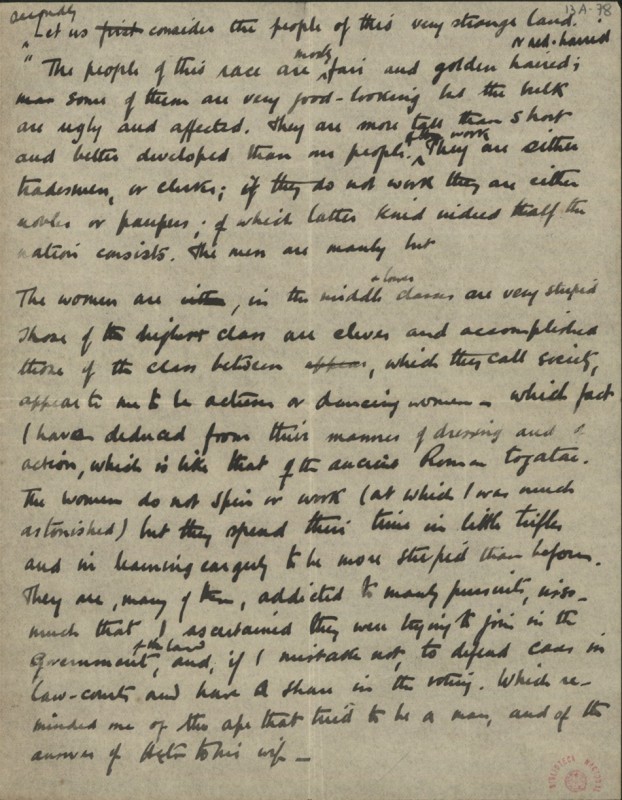 secondly 13A-78
"Let us first consider the people of this very strange land.
or red-haired
mostly
"The people of this race are fair and golden haired;
man some of them are very good-looking but the bulk
are ugly and affected. They are more tall than short
work
and better developed than our people. They are either
tradesmen, or clerks; if they do not work they are either
nobles or paupers; of which latter kind indeed half the
nation consists. The men are manly but
& lower
The women are, in the middle classes are very stupid
those of the highest class are clever and accomplished
those of the class between appear, which they call society,
appear to me to be actresses or dancing women — which fact
I have deduced from their manner of dressing and of
action, which is like that of the ancient Roman togatae.
The women do not spin or work (at which I was much
astonished) but they spend their time in little trifles
and in learning eagerly to be more stupid than before.
They are, many of them, addicted to manly pursuits, inso-
much that I ascertained they were trying to join in the
of the land
government, and, if I mistake not, to defend cases in
law-courts and have a share in the voting. Which re-
minded me of the ape that tried to be a man, and of the
answer of to his wife —
BIBLIOTECA NACIONAL